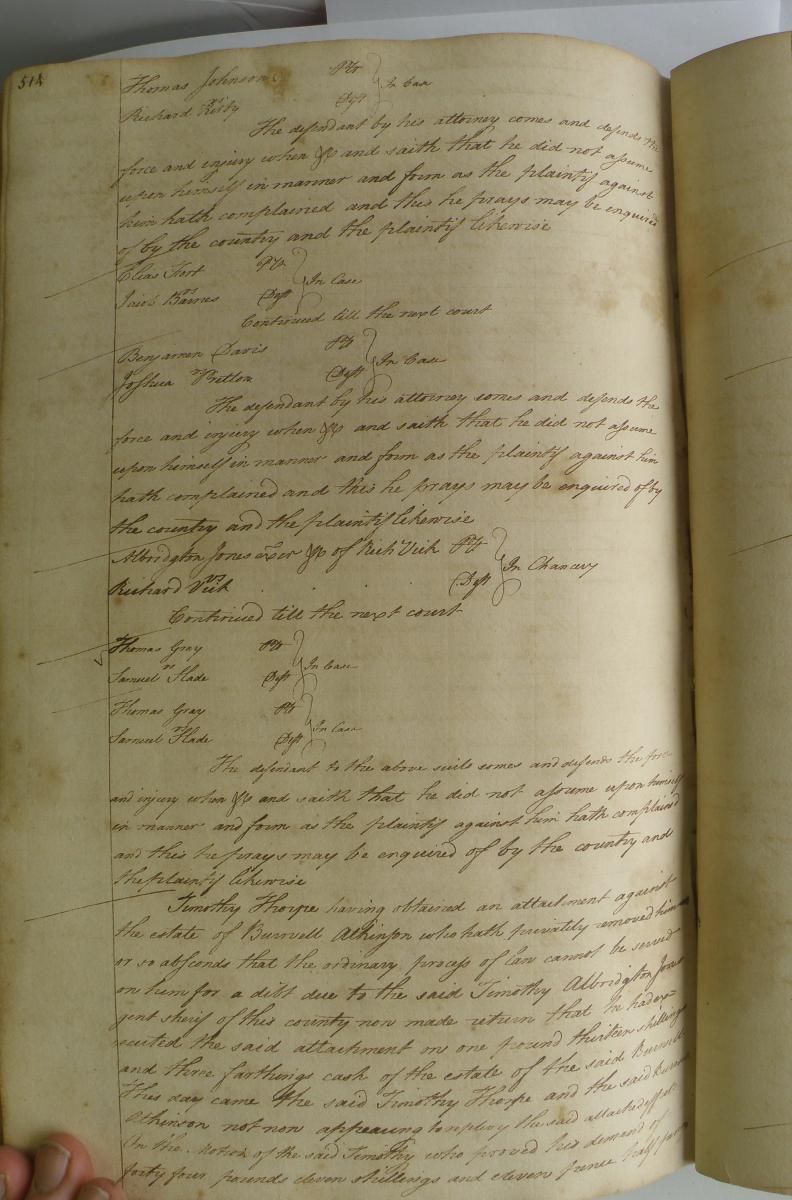 514
Thomas Johnson Plt
vs } In Case
Richard Kirby Deft
The defendant by his attorney comes and defends the
force and injury when &c and saith that he did not assume
upon himself in manner and form as the plaintif against
him hath complained and this he prays may be enquired
of by the country and the plaintif likewise
Elias Fort Plt
vs } In Case
Jacob Barnes Deft
Continued till the next court
Benjamen Davis Plt
vs } In Case
Joshua Deft
The defendant by his attorney comes and defends the
force and injury when &c and saith that he did not assume
upon himself in manner and form as the plaintif against him
hath complained and this he prays may be enquired of by
the country and the plaintif likewise
Albridgton Jones exer &c of Richd Vick Plt
vs } In Chancery
Richard Vick Deft
Continued till the next court
Thomas Gray Plt
vs } In Case
Samuel Slade Deft
Thomas Gray Plt
vs } In Case
Samuel Slade Deft
The defendant to the above suits comes and defends the force
and injury when &c and saith that he did not assume upon himself
in manner and form as the plaintif against him hath complained
and this he prays may be enquired of by the country and
the plaintif likewise
Timothy Thorpe having obtained an attachment against
the estate of Burwell Atkinson who hath privately removed him
or so absconds that the ordinary process of law cannot be served
on him for a debt due to the said Timothy Albridgton Jones
gent sherif of this county now made return that he had exe=
cuted the said attachment on one pound thirteen shillings
and three farthings cash of the estate of the said Burwell
This day came the said Timothy Thorpe and the said Burwell
Atkinson not now appearing to replevy the said attached effects
On the Motion of the said Timothy who proved his demand of
forty four pounds eleven shillings and eleven pence half penny